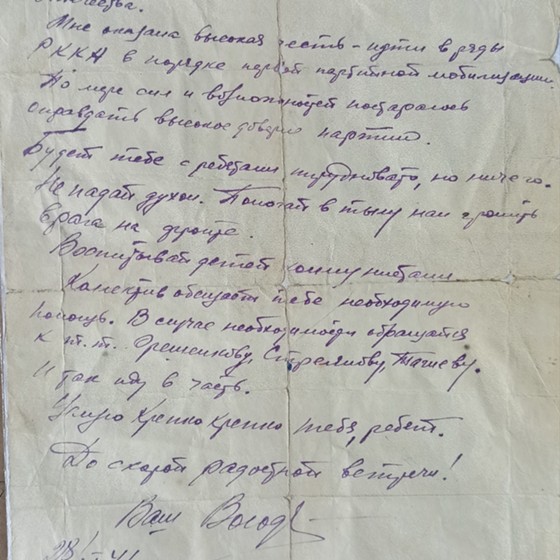 Мне оказана высокая честь - идти в ряды
РККА в порядке первой партийной мобилизации.
По мере сил и возможностей постараюсь
оправдать высокое доверие партии.
Будет тебе с ребятами трудновато, но ничего.
Не падай духом. Помогай в тылу нам громить
врага на фронте.
Воспитывай детей коммунистами
Колектив обещает тебе необходимую
помощь. В случае необходимости обращайся
к т.т. Орешенкову, Стрелкову, Тагиеву.
И так иду в часть.
Целую крепко крепко тебя, ребят.
До скорой радостной встречи!
Ваш Володя